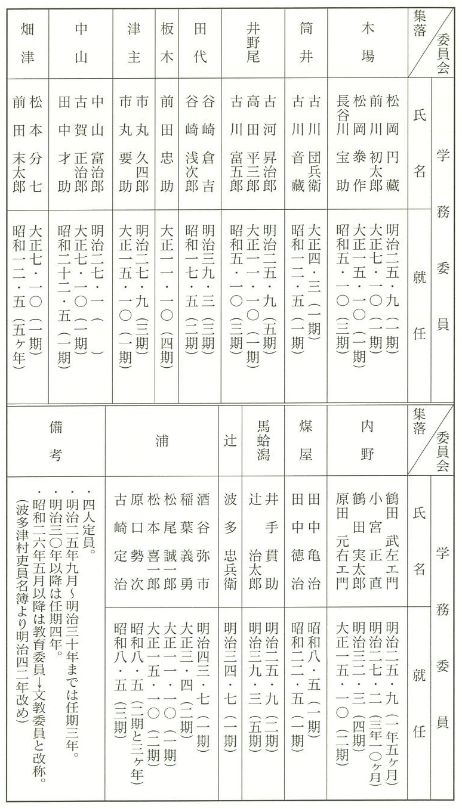 委員会
集落
学務委員
氏名
就任
木場
松岡円蔵 明治二五・九(一期)
前川初太郎 大正七・一〇(一期)
松岡泰作 大正一五・一〇(一期)
長谷川宝助 昭和五・一〇(三期)
筒井
古川団兵衛 大正四・三(一期)
古川音蔵 昭和一二・五(一期)
井野尾
古河昇治郎 明治二五・九(五期)
高田平三郎 大正一一・一〇(一期)
古川富五郎 昭和五・一〇(三期)
田代
谷崎倉吉 明治三九・三(三期)
谷崎浅次郎 昭和一七・五(二期)
板木
前田忠助 大正一一・一〇(四期)
津主
市丸久四郎 明治二七・九(三期)
市丸要助 大正一五・一〇(一期)
中山
中山富治郎 明治二七・一( )
古賀正治郎 大正七・一〇(一期)
田中才助 昭和二十二・五(一期)
畑津
松本分七 大正七・一〇(一期)
前田末太郎 昭和一二・五(五ヶ年)
委員会
集落
学務委員
氏名
就任
内野
鶴田武左エ門 明治二五・九(一年五ヶ月)
小宮正直 明治二七・二(三年一〇ヶ月)
鶴田実太郎 明治三二・三(四期)
原田元右エ門 大正一五・一〇(二期)
煤屋
田中亀治 昭和八・五(一期)
田中徳治 昭和二二・五(一期)
馬蛤潟
井手貫助 明治二五・九(二期)
辻治太郎 明治二九・三(五期)
辻
波多忠兵衛 明治三四・七(一期)
浦
酒谷弥市 明治四三・七(一期)
稲葉義勇 大正三・四(二期)
松尾誠一郎 大正一一・一〇(一期)
松本喜一郎 大正一五・一〇(二期)
原口勢次 昭和八・五(二期と三ヶ年)
古崎定治 昭和八・五(三期)
備考
・四人定員。
・明治二五年九月〜明治三十年までは任期三年。
・明治三〇年以降は任期四年。
・昭和二六年五月以降は教育委員→文教委員と改称。
(波多津村吏員名簿より明治四二年改め)